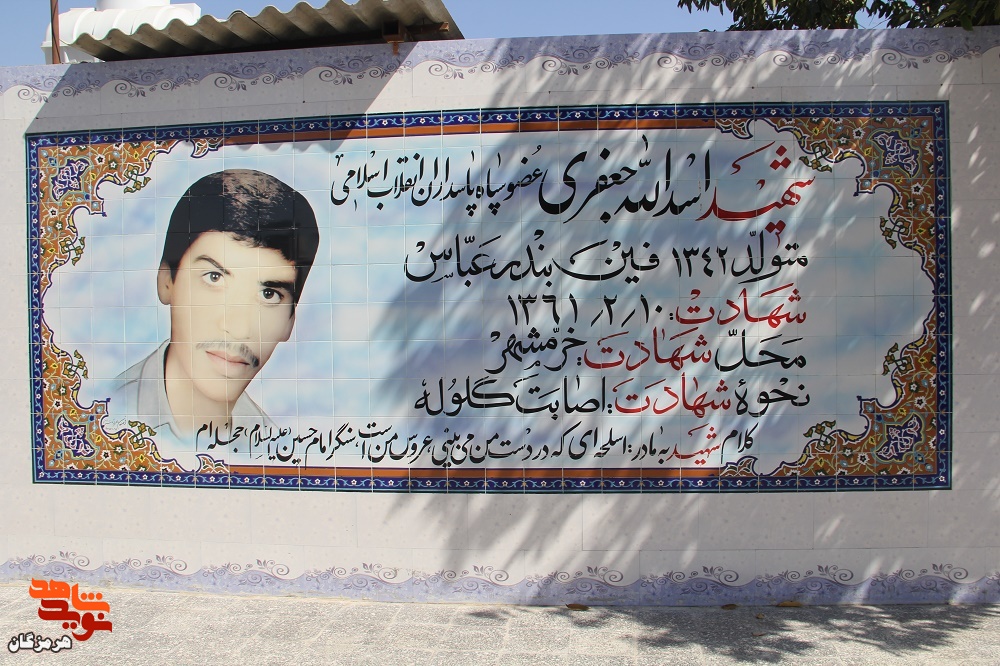 شهید اسدالله جعفری عضو سپاه پاسداران انقلاب اسلامی
متولد ۱۳۴۲ فین بندرعباس
شهادت: ۱۰٫۲٫۱۳۶۱
محل شهادت: خرمشهر
نحوهٔ شهادت: اصابت گلوله
کلام شهید به مادر: اسلحه ای که در دست من می بینی عروس من است، سنگر امام حسین (علیه السلام) حجله ام
نوید شاهد
هرمزگان